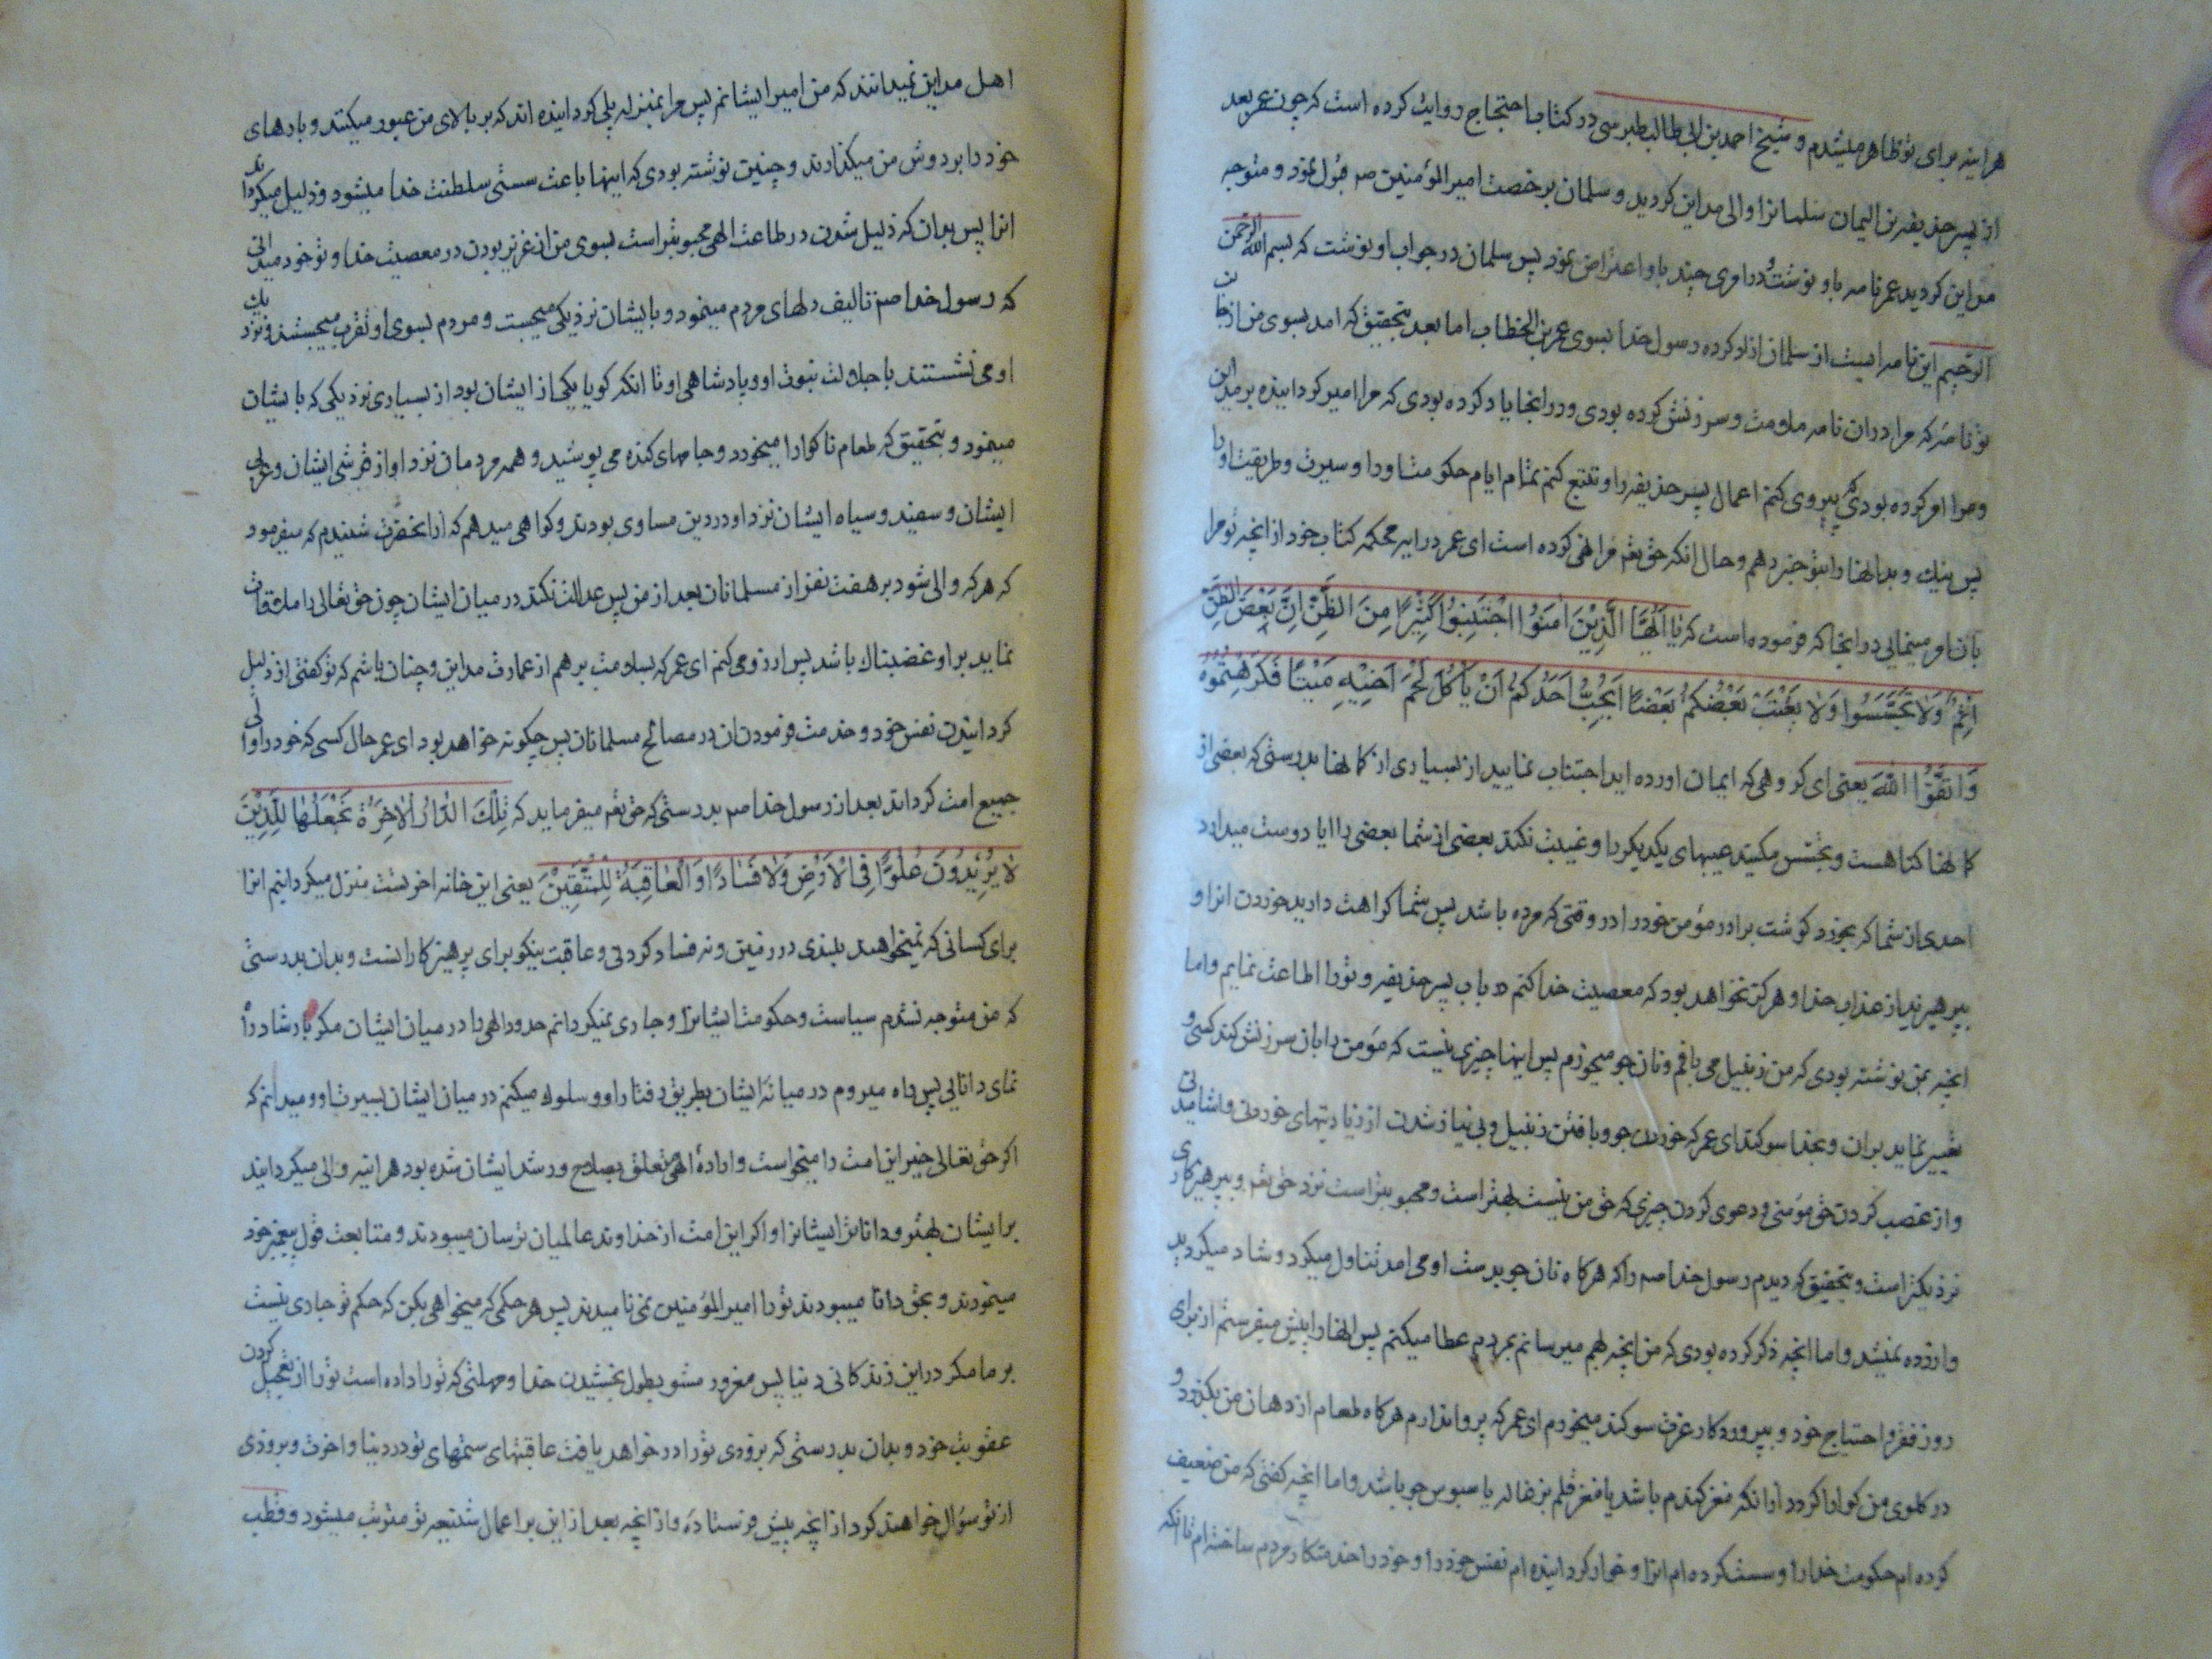 هراینه برای تو ظاهر میشدم و شیخ احمد بن ابی طالب طبرسی در کتاب احتجاج روایت کرده است که چون عمر بعد
از پسر حذیفه بن الیمان سلمانرا والی مداین کردید و سلمان برخصت امیر المؤمنین صم قبول نمود و متوجه
مداین کردید عمر نامه باو نوشت و در امری چند باو اعتراض نمود پس سلمان در جواب او نوشت که بسم الله الرحمن
الرحیم این نامه ایست از سلمان ازاد کرده رسول خدا بسوی عمر بن الخطاب اما بعد بتحقیق که امد بسوی من از جانب
تو نامه که مرا دران نامه ملامت و سرزنش کرده بودی و درانجا یاد کرده بودی که مرا امیر کردانیده بر مداین
و مرا امر کرده بودی که پیروی کنم اعمال پسر حذیفه را و تتبع کنم تمام ایام حکومت او را و سیرت و طریقت او را
پس نیک و بد انها را بتو خبر دهم و حال انکه حق تعم مرا نهی کرده است ای عمر در ایه محکمه کتاب خود از انچه تو مرا
بان امر مینمایی درانجا که فرموده است که یا اَیُّهَا الَّذِینَ اٰمَنُوا اجْتَنِبُوا کَثِیرًا مِنَ الظَّنِّ اِنَّ بَعْضَ الظَّنِّ
اِثْمٌ وَلَا تَجَسَّسُوا وَلَا یَغْتَبْ بَعْضُکُمْ بَعْضًا اَیُحِبُّ اَحَدُکُمْ اَنْ یَأْکُلَ لَحْمَ اَخِیهِ مَیْتًا فَکَرِهْتُمُوهُ
وَاتَّقُوا اللّٰهَ یعنی ای کروهی که ایمان اورده اید اجتناب نمایید از بسیاری از کمانها بدرستی که بعضی از
کمانها کناهست و تجسس مکنید عیبهای یکدیکر را و غیبت نکند بعضی از شما بعضی را ایا دوست میدارد
احدی از شما که بخورد کوشت برادر مؤمن خود را در وقتی که مرده باشد پس شما کراهت دارید خوردن انرا و
بپرهیزید از عذاب خدا و هرکز نخواهد بود که معصیت خدا کنم در باب پسر حذیفه و تو را اطاعت نمایم و اما
انچه بمن نوشته بودی که من زنبیل می بافم و نان جو میخورم پس اینها چیزی نیست که مؤمن را بان سرزنش کند کسی و
تغییر نماید بران و بخدا سوکند ای عمر که خوردن جو و بافتن زنبیل و بی نیاز شدن از زیادتیهای خوردنی و اشامیدنی
و از غصب کردن حق مؤمنی و دعوی کردن چیزی که حق من نیست بهتر است و محبوبتر است نزد حق تعم و بپرهیزکاری
نزدیکتر است و بتحقیق که دیدم رسول خدا صم را که هرکاه نان جو بدست او می امد تناول میکرد و شاد میکردید
وازرده نمیشد و اما انچه ذکر کرده بودی که من انچه بهم میرسانم بمردم عطا میکنم پس انها را پیش میفرستم از برای
روز فقر و احتیاج خود و بپروردکار عزت سوکند میخورم ای عمر که پروا ندارم هرکاه طعام از دهان من بکذرد و
در کلوی من کوارا کردد از انکه مغز کندم باشد یا مغز قلم بزغاله یا سبوس جو باشد و اما انچه کفتی که من ضعیف
کرده ام حکومت خدا را و سست کرده ام انرا و خوار کردانیده ام نفس خود را و خود را خدمتکار مردم ساخته ام تا انکه
اهل مداین نمیدانند که من امیر ایشانم پس مرا بمنزله پلی کردانیده اند که بر بالای من عبور میکنند و بارهای
خود را بر دوش من میکذارند و چنین نوشته بودی که اینها باعث سستی سلطنت خدا میشود و ذلیل میکرداند
انرا پس بدان که ذلیل شدن در طاعت الهی محبوبتر است بسوی من از عزیز بودن در معصیت خدا و تو خود میدانی
که رسول خدا صم تالیف دلهای مردم مینمود و بایشان نزدیکی میجست و مردم بسوی او تقرب میجستند و نزدیک
او می نشستند با جلالت نبوت او و پادشاهی او تا انکه کویا یکی از ایشان بود از بسیاری نزدیکی که بایشان
مینمود و بتحقیق که طعام ناکوارا میخورد و جامهای کنده می پوشید و همه مردمان نزد او از قرشی ایشان و عربی
ایشان و سفید و سیاه ایشان نزد او در دین مساوی بودند و کواهی میدهم که از انحضرت شنیدم که میفرمود
که هرکه والی شود بر هفت نفر از مسلمانان بعد از من پس عدالت نکند در میان ایشان چون حق تعالی را ملاقات
نماید بر او غضبناک باشد پس ارزو می کنم ای عمر که بسلامت برهم از عمارت مداین و چنان باشم که تو کفتی از ذلیل
کردانیدن نفس خود و خدمت فرمودن ان در مصالح مسلمانان پس چکونه خواهد بود ای عمر حال کسی که خود را والی
جمیع امت کرداند بعد از رسول خدا صم بدرستی که حق تعم میفرماید که تِلْکَ الدَّارُ الْاٰخِرَةُ نَجْعَلُهَا لِلَّذِینَ
لَا یُرِیدُونَ عُلُوًّا فِی الْاَرْضِ وَلَا فَسَادًا وَالْعَاقِبَةُ لِلْمُتَّقِینَ یعنی این خانه اخرتست منزل میکردانیم انرا
برای کسانی که نمیخواهند بلندی در زمین و نه فساد کردنی و عاقبت نیکو برای پرهیزکارانست و بدان بدرستی
که من متوجه نشدم سیاست و حکومت ایشانرا و جاری نمیکردانم حدود الهی را در میان ایشان مکر بارشاد راه
نمای دانایی پس براه میروم در میانه ایشان بطریق رفتار او و سلوک میکنم در میان ایشان بسیرت او و میدانم که
اکر حق تعالی خیر این امت را میخواست و اراده الهی متعلق بصلاح و رشد ایشان شده بود هراینه والی میکردانید
بر ایشان بهتر و داناتر ایشانرا و اکر این امت از خداوند عالمیان ترسان میبودند و متابعت قول پیغمبر خود
مینمودند و بحق دانا میبودند تو را امیر المؤمنین نمی نامیدند پس هر حکمی که میخواهی بکن که حکم تو جاری نیست
بر ما مکر در این زندکانی دنیا پس مغرور مشو بطول بخشیدن خدا و مهلتی که تو را داده است تو را از تعجیل کردن
عقوبت خود و بدان بدرستی که بزودی تو را در خواهد یافت عاقبتهای ستمهای تو در دنیا و اخرت و بزودی
از تو سؤال خواهند کرد از انچه پیش فرستاده و از انچه بعد از این بر اعمال شنیعه تو مترتب میشود و قطب